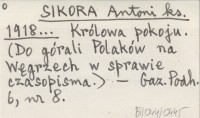 SIKORA Antoni ks.
1918... Królowa pokoju.
(Do górali Polaków na
Węgrzech w sprawie
czasopisma.) — Gaz. Podh.
6, nr 8.